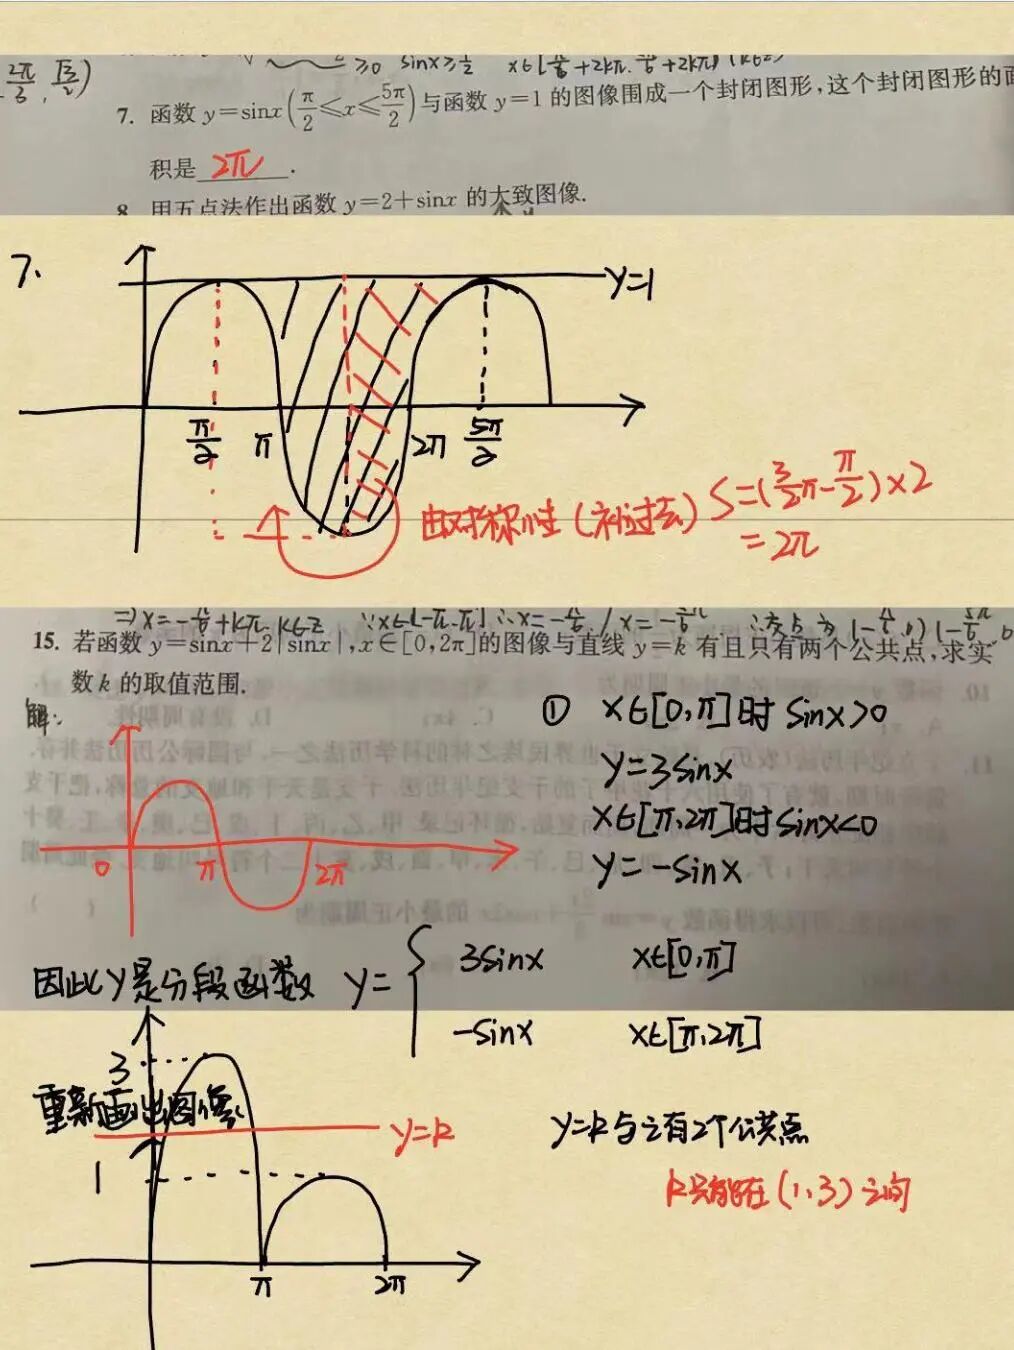 2π/3, √3/2)
≥0 sinx≥1/2 x∈[π/6+2kπ,
7. 函数 y=sinx(π/2≤x≤5π/2)与函数 y=1 的图像围成一个封闭图形,这个封闭图形的面
积是 2π .
8. 用五点法作出函数 y=2+sinx 的大致图像.
7.
y=1
π/2 π 2π 5π/2
由对称性(补过去) S=(3/2π-π/2)×2
=2π
⇒x=-π/6+kπ, k∈Z ∵x∈[-π,π] ∴x=-π/6
15. 若函数 y=sinx+2|sinx|,x∈[0,2π]的图像与直线 y=k 有且只有两个公共点,求实
数 k 的取值范围.
解:
① x∈[0,π]时 sinx>0
y=3sinx
x∈[π,2π]时 sinx<0
y=-sinx
0 π 2π
因此y是分段函数 y={ 3sinx x∈[0,π]
-sinx x∈[π,2π]
3
重新画出图像
y=k
1
π 2π
y=k与之有2个公共点
k只能在(1,3)之间